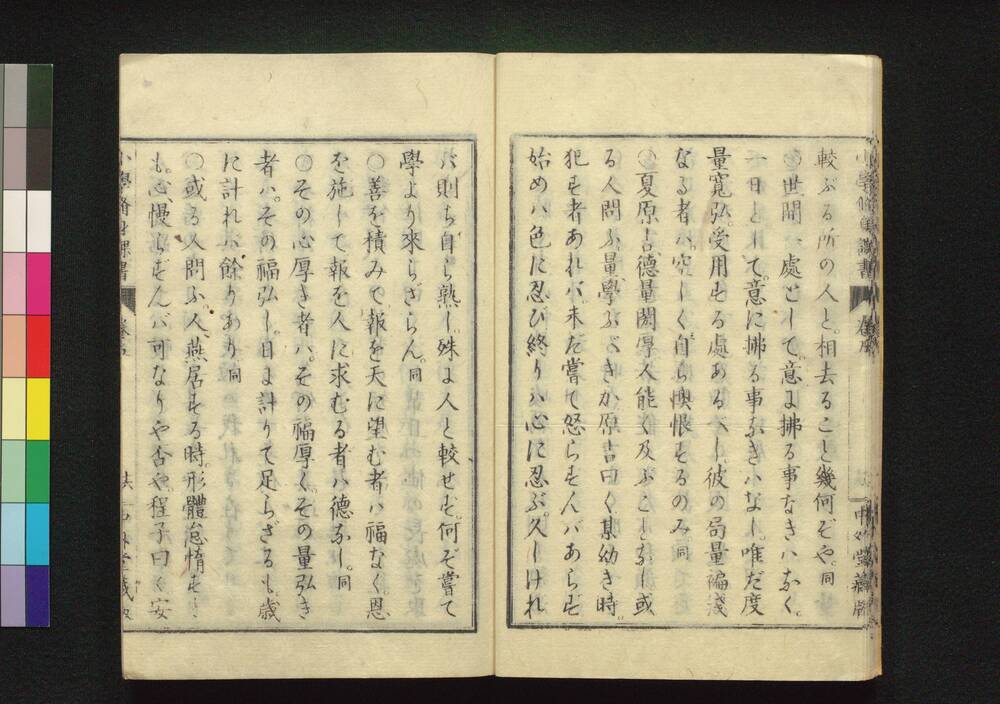 較ぶる所の人と。相去ること幾何ぞや。同
〇世間一處として。意に拂る事なきハなく。
一日として。意に拂る事なきハなし。唯だ度
量寬弘。受用する處あるべし。彼の局量褊淺
なる者ハ。空しく自ら懊恨するのみ。同
〇夏原吉。德量閎厚人能く及ぶことなし。或
る人問ふ。量學ぶべきか原吉曰く。某幼き時。
犯す者あれバ。未だ嘗て怒らずんバあらず
始めハ色に忍び終りハ心に忍ぶ。久しけれ
バ則ち自ら熟し。殊に人と較せず。何ぞ嘗て
學より來らざらん。同
〇善を積みて。報を天に望む者ハ福なく。恩
を施して報を人に求むる者ハ德なし。同
〇その心厚き者ハ。その福厚く。その量弘き
者ハ。その福弘し。日に計りて足らざるも。歳
に計れハ餘りあり。同
〇或る人問ふ。人燕居する時。形體怠惰す
も。心慢らずんバ可なりや否や。程子曰く安